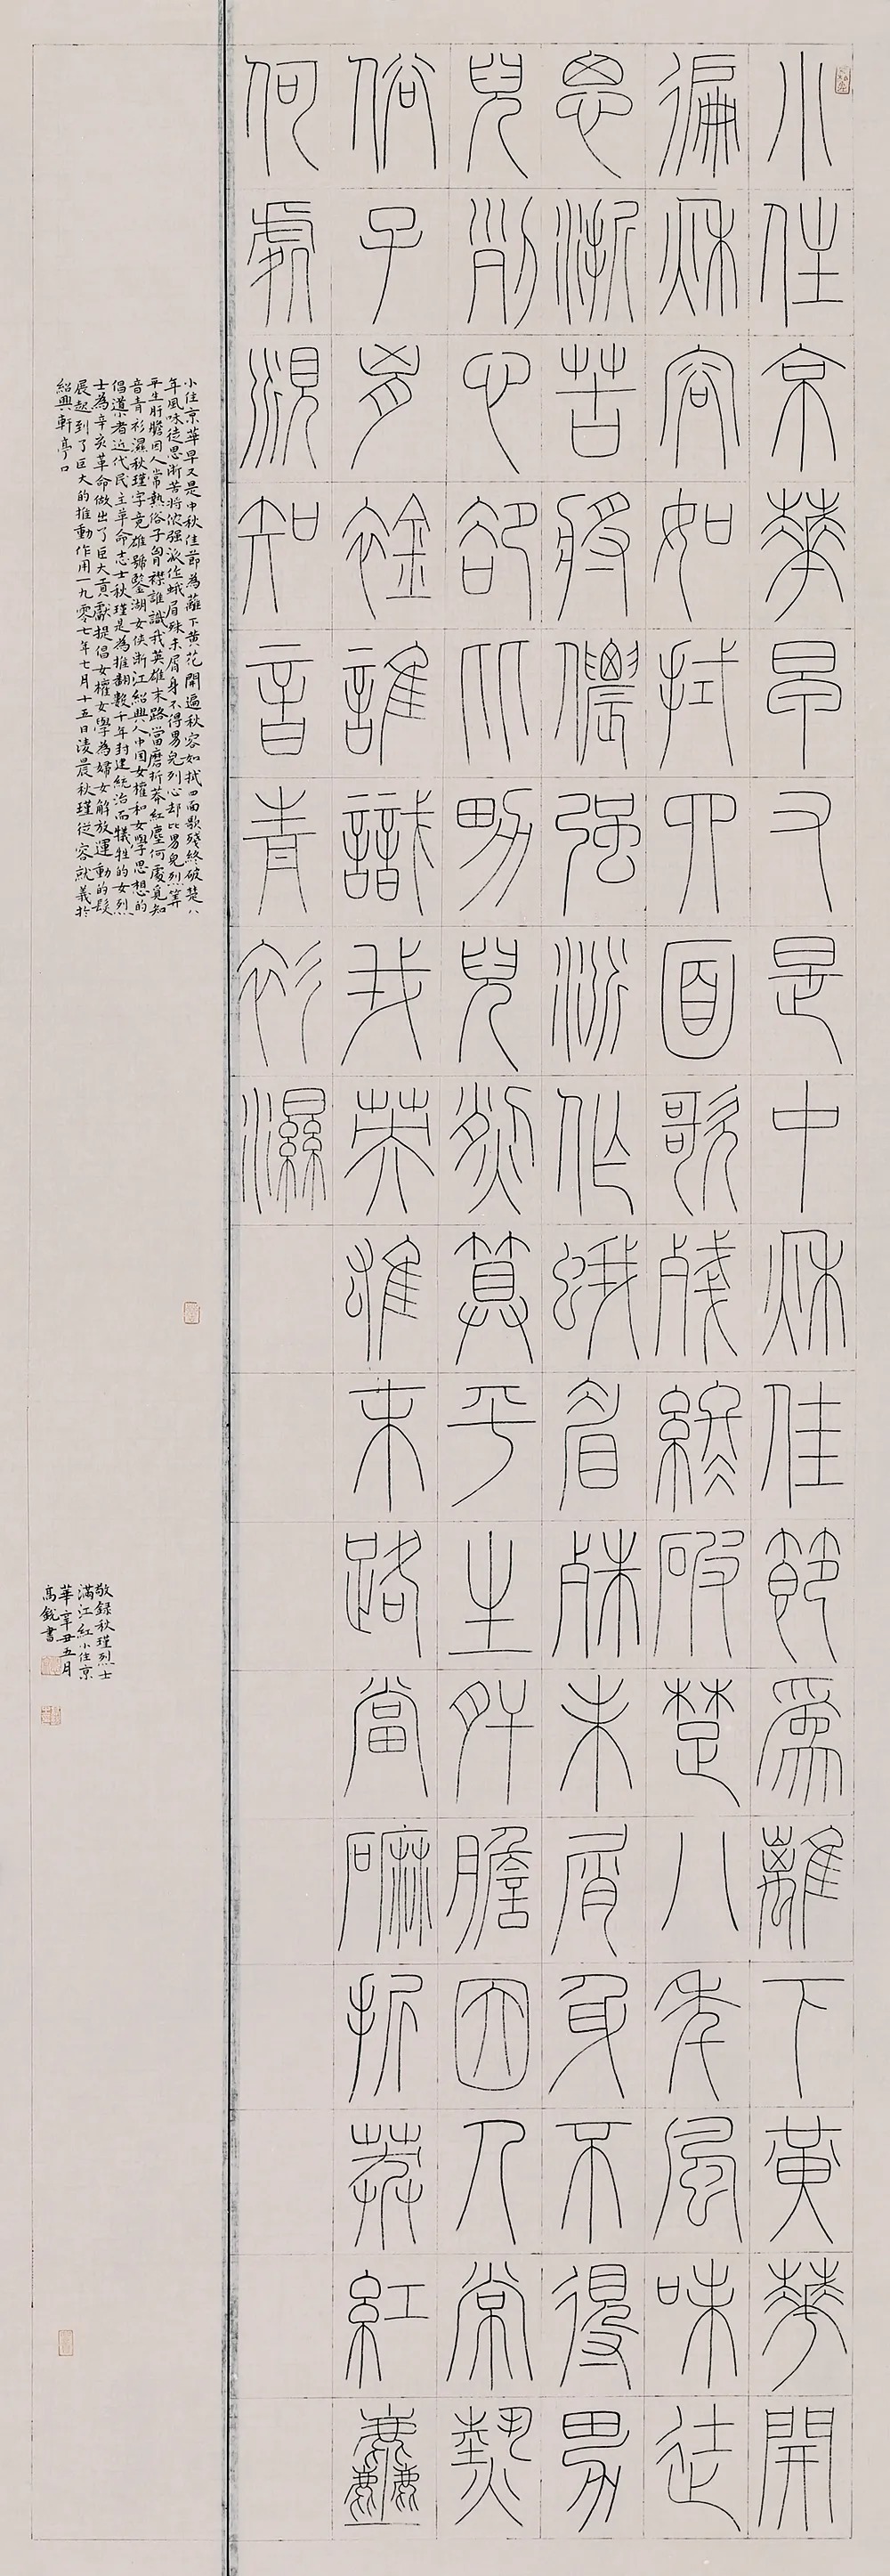 小住京華早又是中秋佳節爲離下黃華開
徧秋容如拭四面歌殘終破楚八年風味徒
思浙苦將儂強派作蛾眉殊未屑身不得男
兒列心卻比男兒烈算平生肝膽因人常熱
俗子胷襟誰識我英雄末路當磨折莽紅塵
何處覓知音青衫濕
小住京華早又是中秋佳節為蘺下黄花開遍秋容如拭四面歌殘終破楚八
年風味徒思浙苦將侬强派作蛾眉殊未屑身不得男兒列心却比男兒烈算
平生肝膽因人常熱俗子胷襟誰識我英雄末路當磨折莽紅塵何處覓知
音青衫濕秋瑾字竞雄號鑒湖女侠浙江紹興人中国女權和女學思想的
倡導者近代民主革命志士秋瑾是為推翻數千年封建統治而犧牲的女烈
士為辛亥革命做出了巨大貢獻提倡女權女學為婦女解放運動的發
展起到了巨大的推動作用一九零七年七月十五日凌晨秋瑾從容就義於
紹興軒亭口
敬録秋瑾烈士
滿江紅小住京
華辛丑五月
高銳書